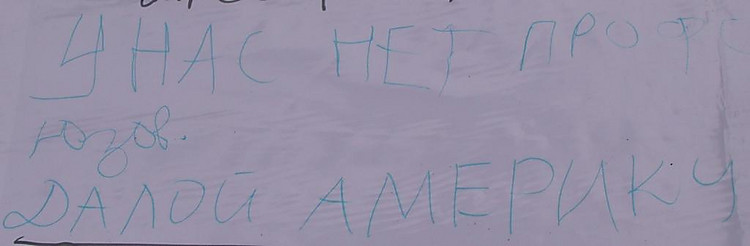 У НАС НЕТ ПРОФС
юзов.
ДАЛОЙ АМЕРИКУ